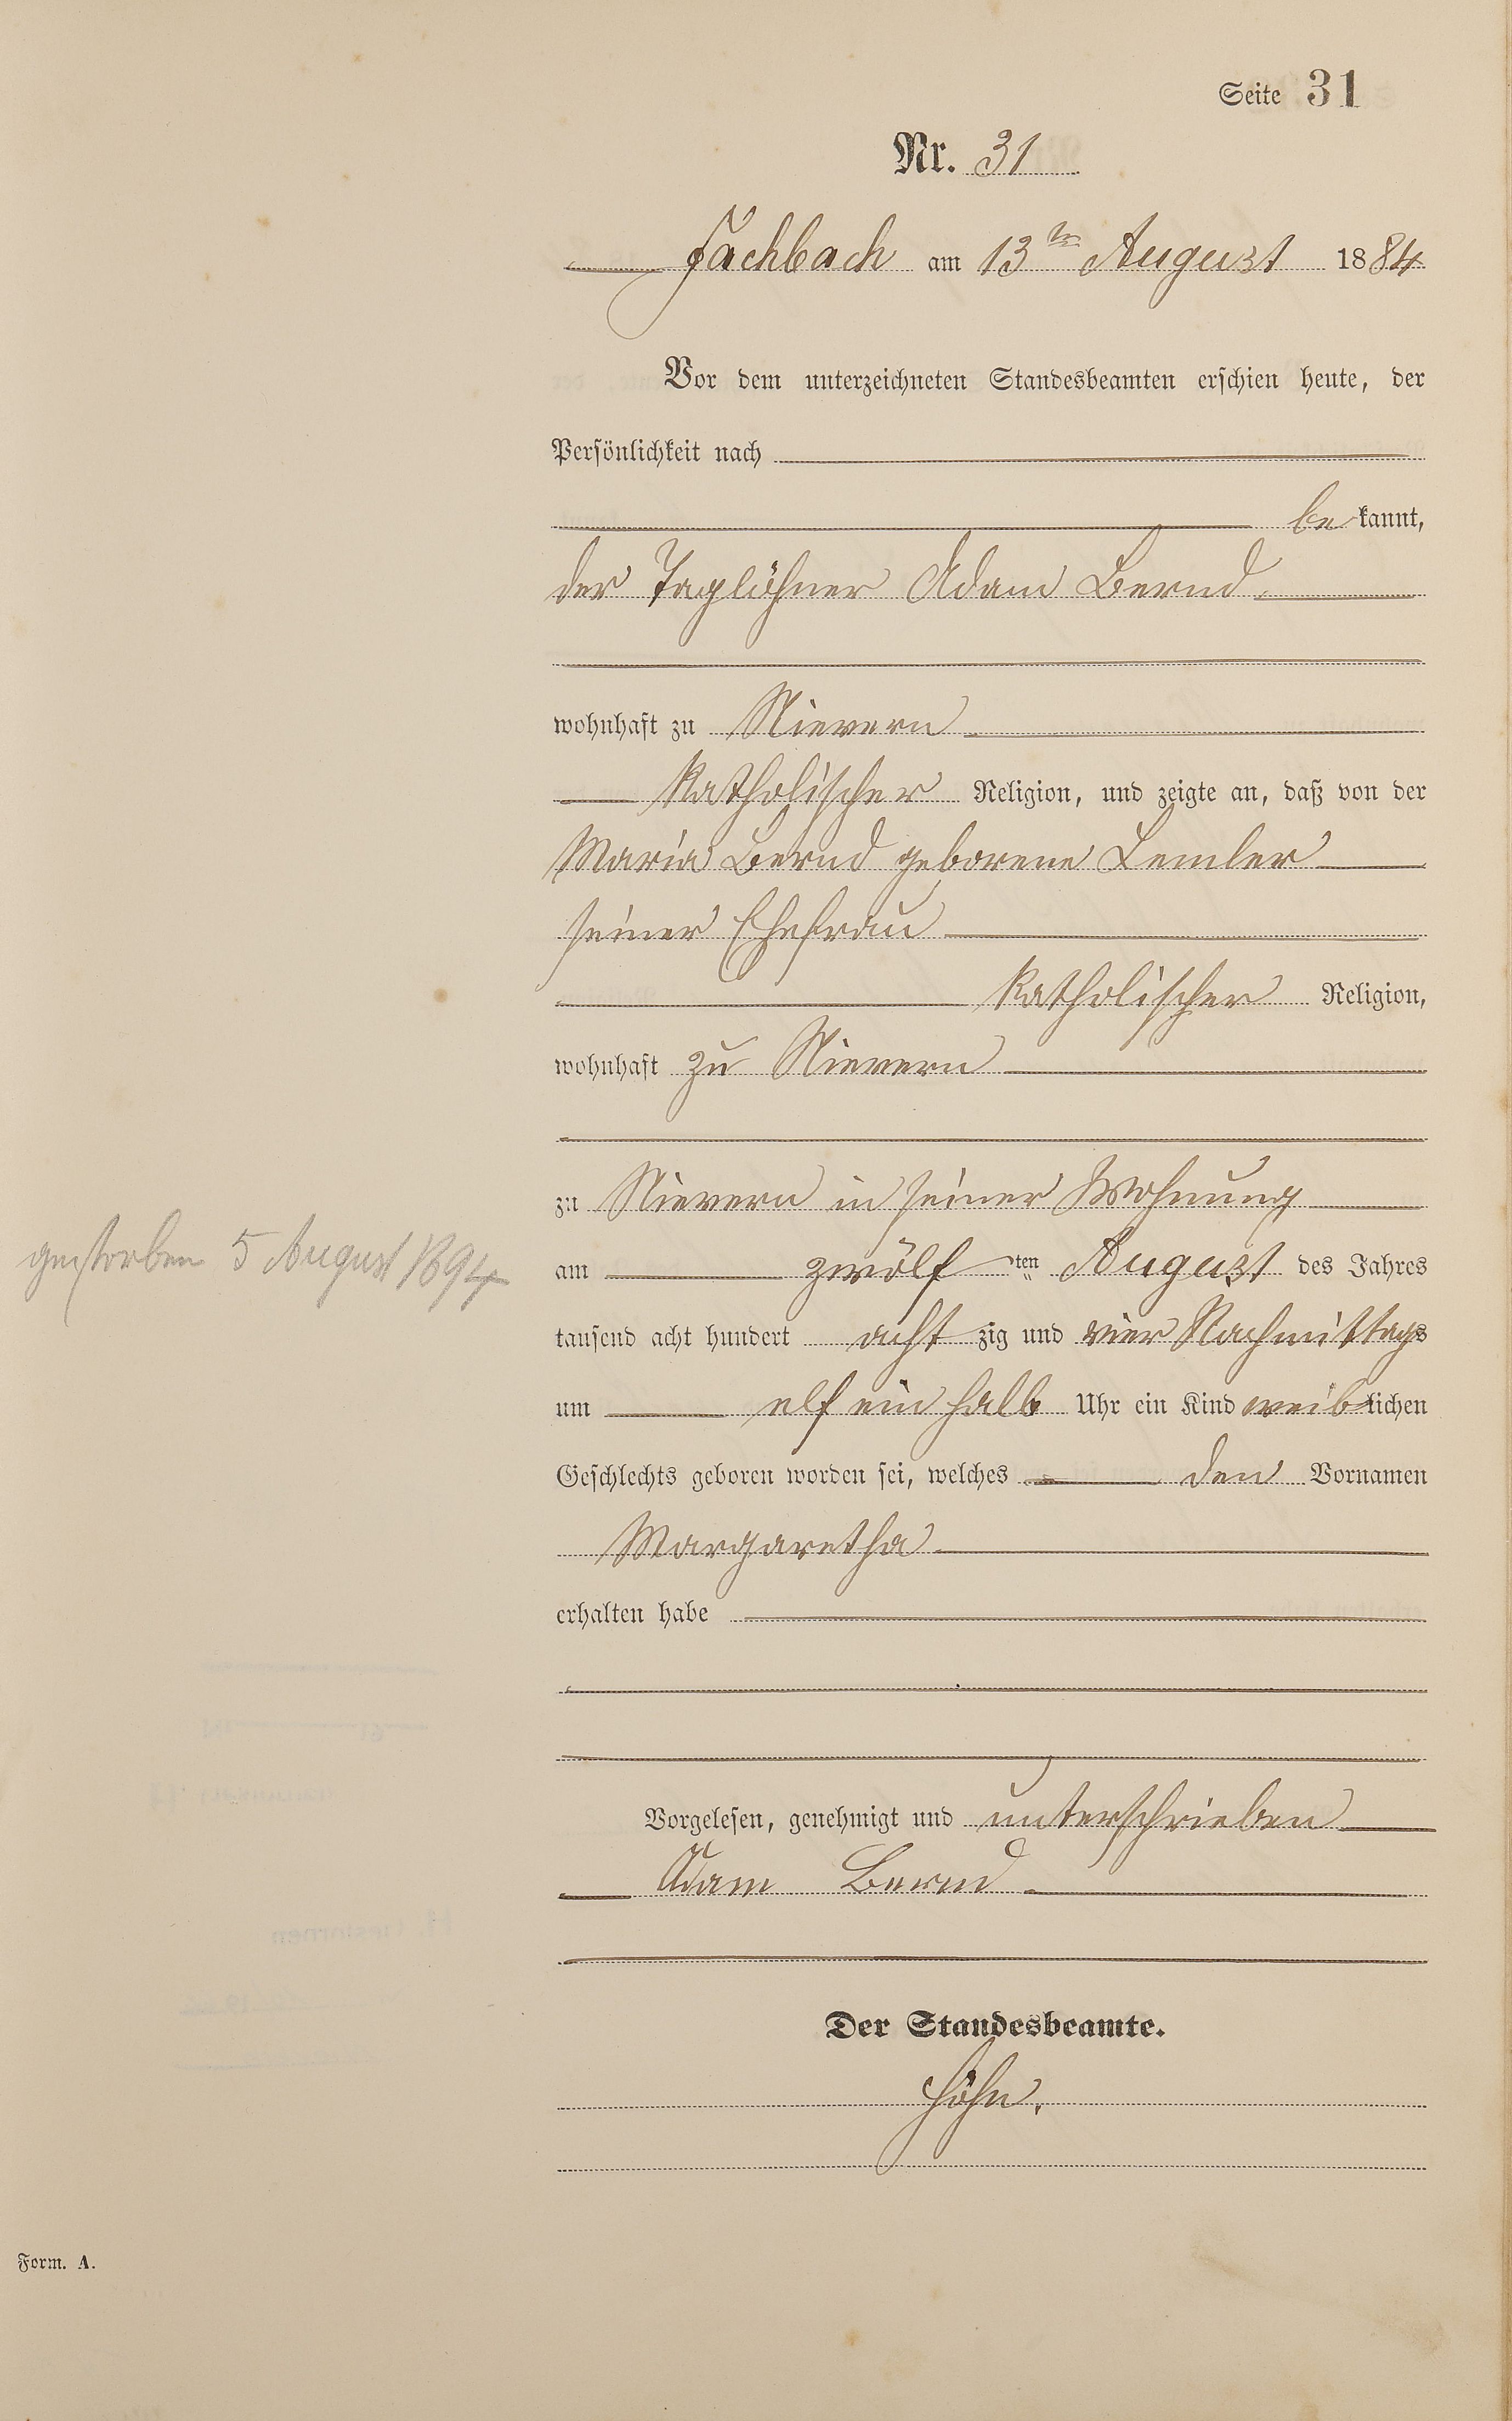 Seite 31
Nr. 31
Fachbach am 13ten August 1884
Vor dem unterzeichneten Standesbeamten erschien heute, der
Persönlichkeit nach
bekannt,
der Taglöhner Adam Bernd
wohnhaft zu Nievern
katholischer Religion, und zeigte an, daß von der
Maria Bernd geborene Lemler
seiner Ehefrau
katholischer Religion,
wohnhaft zu Nievern
zu Nievern in seiner Wohnung
gestorben 5 August 1894
am zwölften August des Jahres
tausend acht hundert achtzig und vier Nachmittags
um elf ein halb Uhr ein Kind weiblichen
Geschlechts geboren worden sei, welches den Vornamen
Margaretha
erhalten habe
Vorgelesen, genehmigt und unterschrieben
Adam Bernd
Der Standesbeamte.
Höhn.
Form. A.